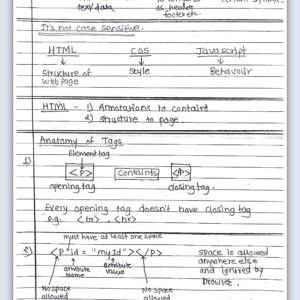 text/data
as header
footer etc.
It's not case sensitive.
HTML CSS Javascript
Structure of
web page
Style
Behaviour
HTML - 1) Annotations to containt
2) structure to page.
Anatomy of Tags
1)
Element tag
<P> Containts </P>
opening tag closing tag
Every opening tag doesn't have closing tag
e.g. <br> . <hr>
must have at least one space
2) <P id = "myId"></P>
attribute
Name
attribute
Value
No space
allowed
No space
allowed
space is allowed
anywhere else
and ignored by
browser.